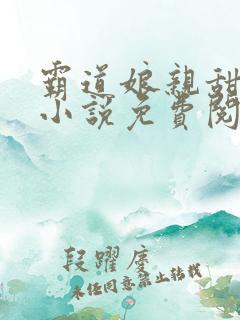 霸道娘親甜
小說免費閱
段躍度
未經同意禁止轉載